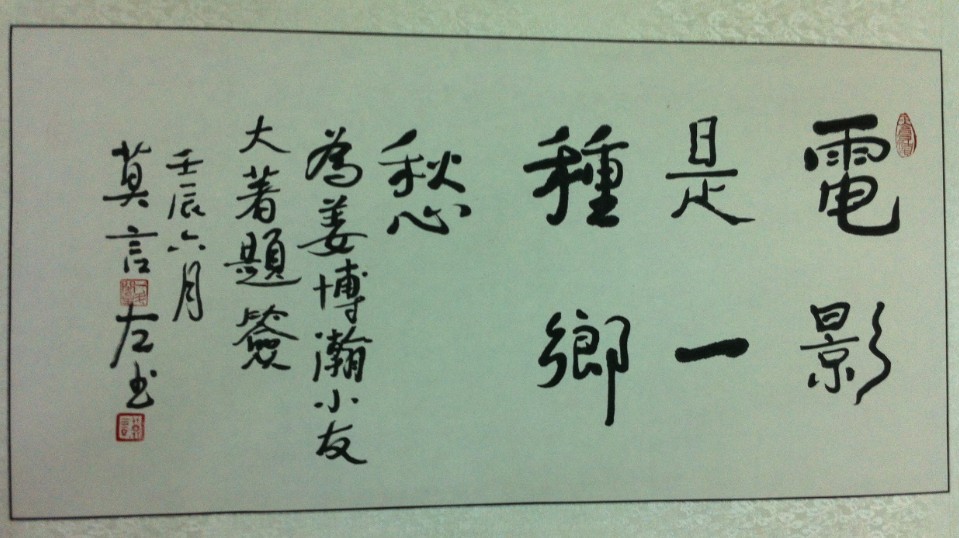 電影
是一
種鄉
愁
為姜博瀚小友
大著題簽
壬辰六月
莫言左书